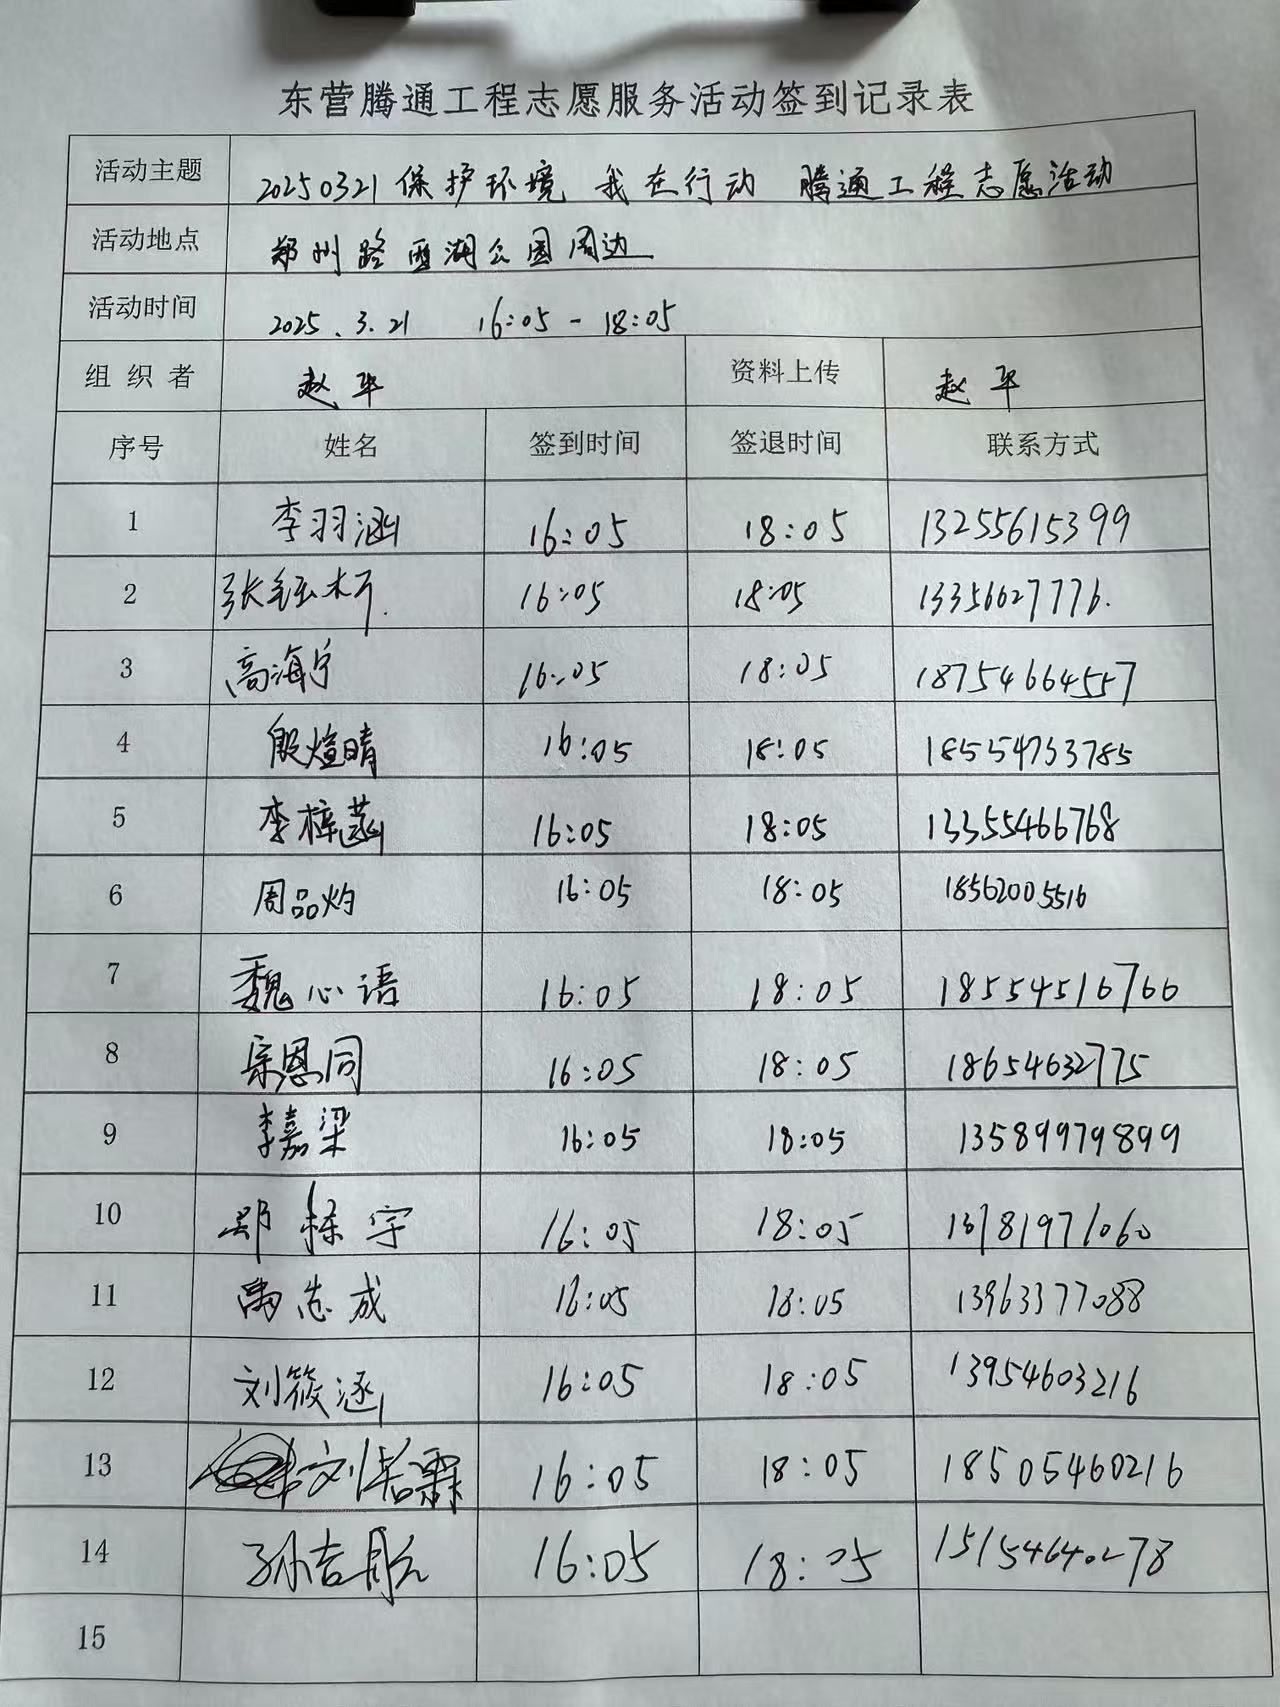 东营腾通工程志愿服务活动签到记录表
活动主题 20250321 保护环境 我在行动 腾通工程志愿活动
活动地点 郑州路西湖公园周边
活动时间 2025.3.21 16:05-18:05
组织者 赵平 资料上传 赵平
序号 姓名 签到时间 签退时间 联系方式
1 李羽涵 16:05 18:05 13255615399
2 张钰析 16:05 18:05 13356627776.
3 高海宁 16:05 18:05 18754664557
4 殷煊晴 16:05 18:05 18554733785
5 李梓菡 16:05 18:05 13355466768
6 周品灼 16:05 18:05 18562005516
7 魏心语 16:05 18:05 18554516766
8 宗恩同 16:05 18:05 18654632775
9 李嘉梁 16:05 18:05 13589979899
10 郑栋宇 16:05 18:05 13781971060
11 禹志成 16:05 18:05 13963377088
12 刘筱涵 16:05 18:05 13954603216
13 刘若霖 16:05 18:05 18505460216
14 孙吉航 16:05 18:05 15154640278
15